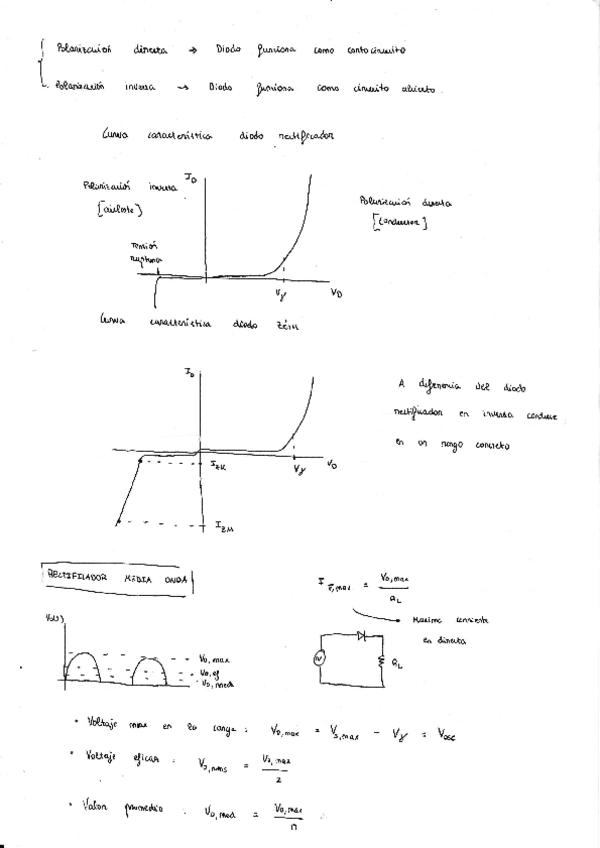 Polarización directa → Diodo funciona como cortocircuito
Polarización inversa → Diodo funciona como circuito abierto.
Curva característica diodo rectificador
I_D
Polarización inversa
[aislante]
Polarización directa
[conductor]
Tensión
ruptura
Vγ
V_D
Curva característica diodo zéner
I_D
A diferencia del diodo
rectificador en inversa conduce
en un rango concreto
I_ZK
Vγ
V_D
I_ZM
RECTIFICADOR MEDIA ONDA
I_F,max = V_o,max / R_L
Máxima corriente
en directa
V_o,max
V_o,ef
V_o,med
R_L
• Voltaje max en la carga : V_o,max = V_s,max - Vγ = V_osc
• Voltaje eficaz : V_o,rms = V_o,max / 2
• Valor promedio : V_o,med = V_o,max / π